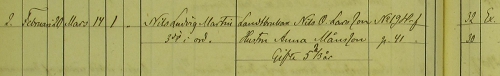 2. Februari 20 Mars 14 1. Nils Ludvig Martin Landtbrukar Nils O. Larsson No 19 32 Ev.
3dje i ord. Hustru Anna Månsson p. 41 30
Gifte 5 år